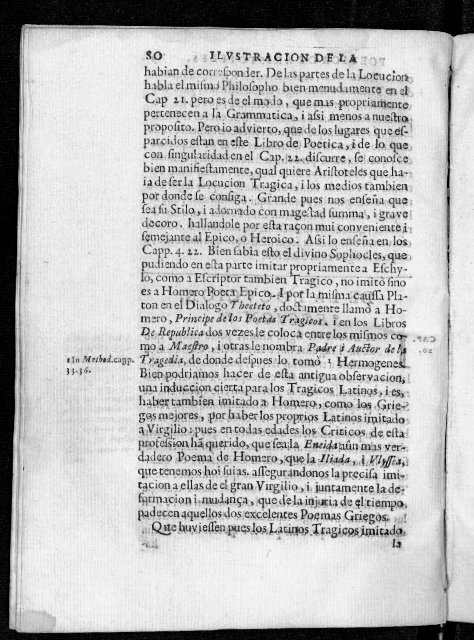 80 ILVSTRACION DE LA
habian de corresponder. De las partes de la Locucion
habla el mismo Philosopho bien menudamente en el
Cap 21. pero es de el modo, que mas propriamente
pertenecen a la Grammatica, i assi menos a nuestro
proposito. Pero io advierto, que de los lugares que es-
parcidos estan en este Libro de Poetica, i de lo que
con singularidad en el Cap. 22. discurre, se conosce
bien manifiestamente, qual quiere Aristoteles que ha-
ia de ser la Locucion Tragica, i los medios tambien
por donde se consiga. Grande pues nos enseña que
sea su Stilo, i adornado con magestad summa, i grave
decoro, hallandole por esta raçon mui conveniente i
semejante al Epico, o Heroico. Assi lo enseña en los
Capp. 4. 22. Bien sabia esto el divino Sophocles, que
pudiendo en esta parte imitar propriamente a Eschy-
lo, como a Escriptor tambien Tragico, no imitò sino
es a Homero Poeta Epico. I por la misma caussa Pla-
ton en el Dialogo Theeteto, doctamente llamò a Ho-
mero, Principe de los Poetas Tragicos, i en los Libros
De Republica dos vezes le coloca entre los mismos co-
mo a Maestro, i otras le nombra Padre i Auctor de la
Tragedia, de donde despues lo tomò 1 Hermogenes.
1 In Method. capp.
33. 36.
Bien podriamos hacer de esta antigua observacion,
una induccion cierta para los Tragicos Latinos, i es,
haber tambien imitado a Homero, como los Grie-
gos mejores, por haber los proprios Latinos imitado
a Virgilio: pues en todas edades los Criticos de esta
profession hã querido, que sea la Eneida aun mas ver-
dadero Poema de Homero, que la Iliada, i Vlyssea,
que tenemos hoi suias. assegurandonos la precisa imi-
tacion a ellas de el gran Virgilio, i juntamente la de-
formacion i mudança, que de la injuria de el tiempo
padecen aquellos dos excelentes Poemas Griegos.
Que huviessen pues los Latinos Tragicos imitado
la